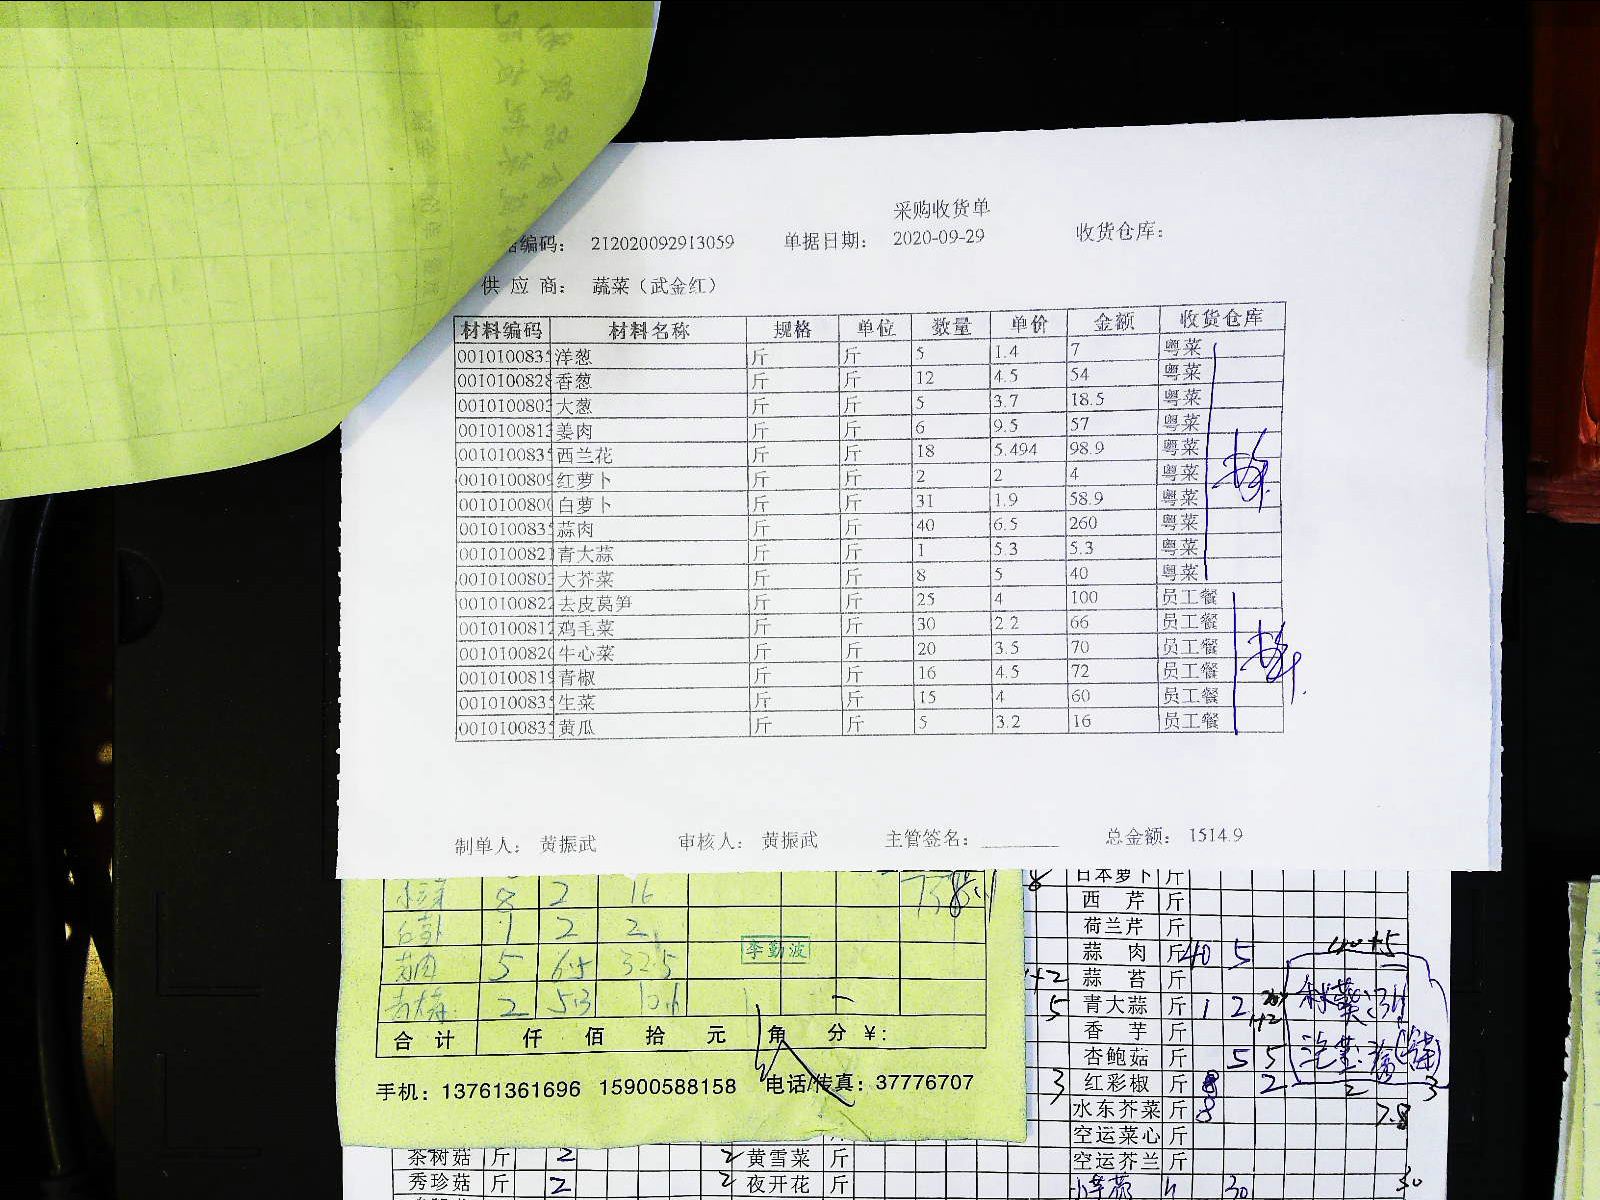 采购收货单
编码： 212020092913059 单据日期： 2020-09-29 收货仓库：
供 应 商： 蔬菜（武金红）
材料编码 材料名称 规格 单位 数量 单价 金额 收货仓库
001010083 洋葱 斤 斤 5 1.4 7 粤菜
001010082 香葱 斤 斤 12 4.5 54 粤菜
001010080 大葱 斤 斤 5 3.7 18.5 粤菜
001010081 姜肉 斤 斤 6 9.5 57 粤菜
001010083 西兰花 斤 斤 18 5.494 98.9 粤菜
001010080 红萝卜 斤 斤 2 2 4 粤菜
001010080 白萝卜 斤 斤 31 1.9 58.9 粤菜
001010083 蒜肉 斤 斤 40 6.5 260 粤菜
001010082 青大蒜 斤 斤 1 5.3 5.3 粤菜
001010080 大芥菜 斤 斤 8 5 40 粤菜
001010082 去皮莴笋 斤 斤 25 4 100 员工餐
001010081 鸡毛菜 斤 斤 30 2.2 66 员工餐
001010082 牛心菜 斤 斤 20 3.5 70 员工餐
001010081 青椒 斤 斤 16 4.5 72 员工餐
001010083 生菜 斤 斤 15 4 60 员工餐
001010083 黄瓜 斤 斤 5 3.2 16 员工餐
制单人： 黄振武 审核人： 黄振武 主管签名： 总金额： 1514.9
8 2 16
1 2 2
蒜肉 5 6.5 32.5
青大蒜 2 5.3 10.6
李勤波
合 计 仟 佰 拾 元 角 分 ¥:
手机：13761361696 15900588158 电话/传真：37776707
日本萝卜 斤
西 芹 斤
荷兰芹 斤
蒜 肉 斤 40 5
蒜 苔 斤
青大蒜 斤 1 2
香 芋 斤
杏鲍菇 斤 5 5
红彩椒 斤 8 2 2 3
水东芥菜 斤 8 7.8
空运菜心 斤
空运芥兰 斤
30 30
茶树菇 斤 2 2 黄雪菜 斤
秀珍菇 斤 2 2 夜开花 斤